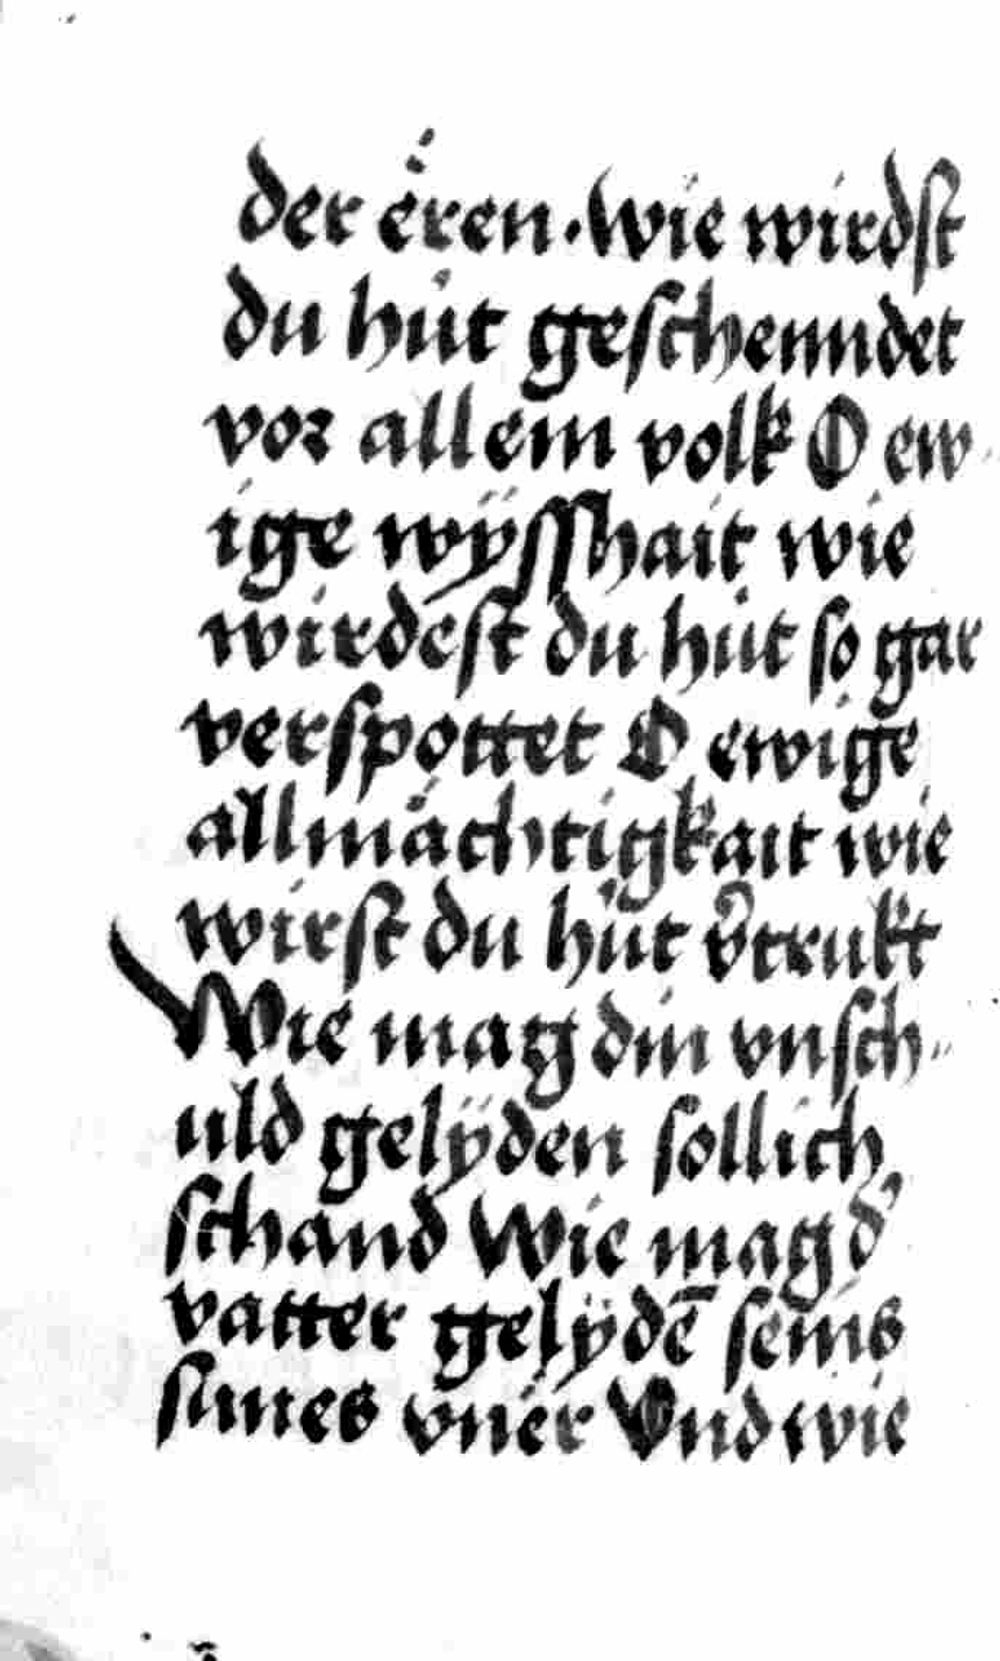 der eͤren. Wie wirdſt
du hüt geſchenndet
vor allem volk O ew-
ige wÿſſhait wie
wirdeſt du hüt ſo gar
verſpottet O ewige
allmaͤchtigkait wie
wirſt du hüt v̕trukt
Wie mag din vnſch-
uld gelÿden ſollich
ſchand Wie mag d̕
vatter gelÿdē ſeins
ſunes vner Vnd wie